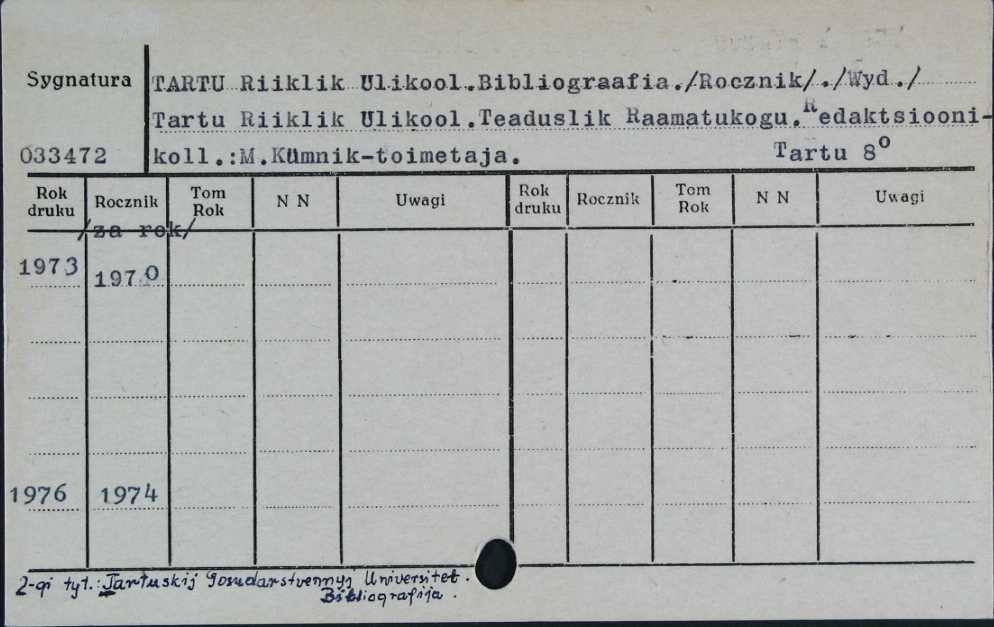 Sygnatura TARTU Riiklik Ulikool.Bibliograafia./Rocznik/./Wyd./
Tartu Riiklik Ulikool.Teaduslik Raamatukogu.Redaktsiooni-
033472 koll.:M.Kümnik-toimetaja. Tartu 8°
Rok druku Rocznik Tom Rok N N Uwagi Rok druku Rocznik Tom Rok N N Uwagi
/za rok/
1973 1970
1976 1974
2-gi tyt.: Tartuskij Gosudarstvennyj Universitet.
Bibliografija.